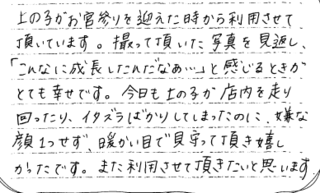 上の子がお宮参りを迎えた時から利用させて
頂いています。撮って頂いた写真を見返し、
「こんなに成長したんだなあ…」と感じるときが
とても幸せです。今日も上の子が店内を走り
回ったり、イタズラばかりしてしまったのに、嫌な
顔1つせず、暖かい目で見守って頂き嬉し
かったです。また利用させて頂きたいと思います